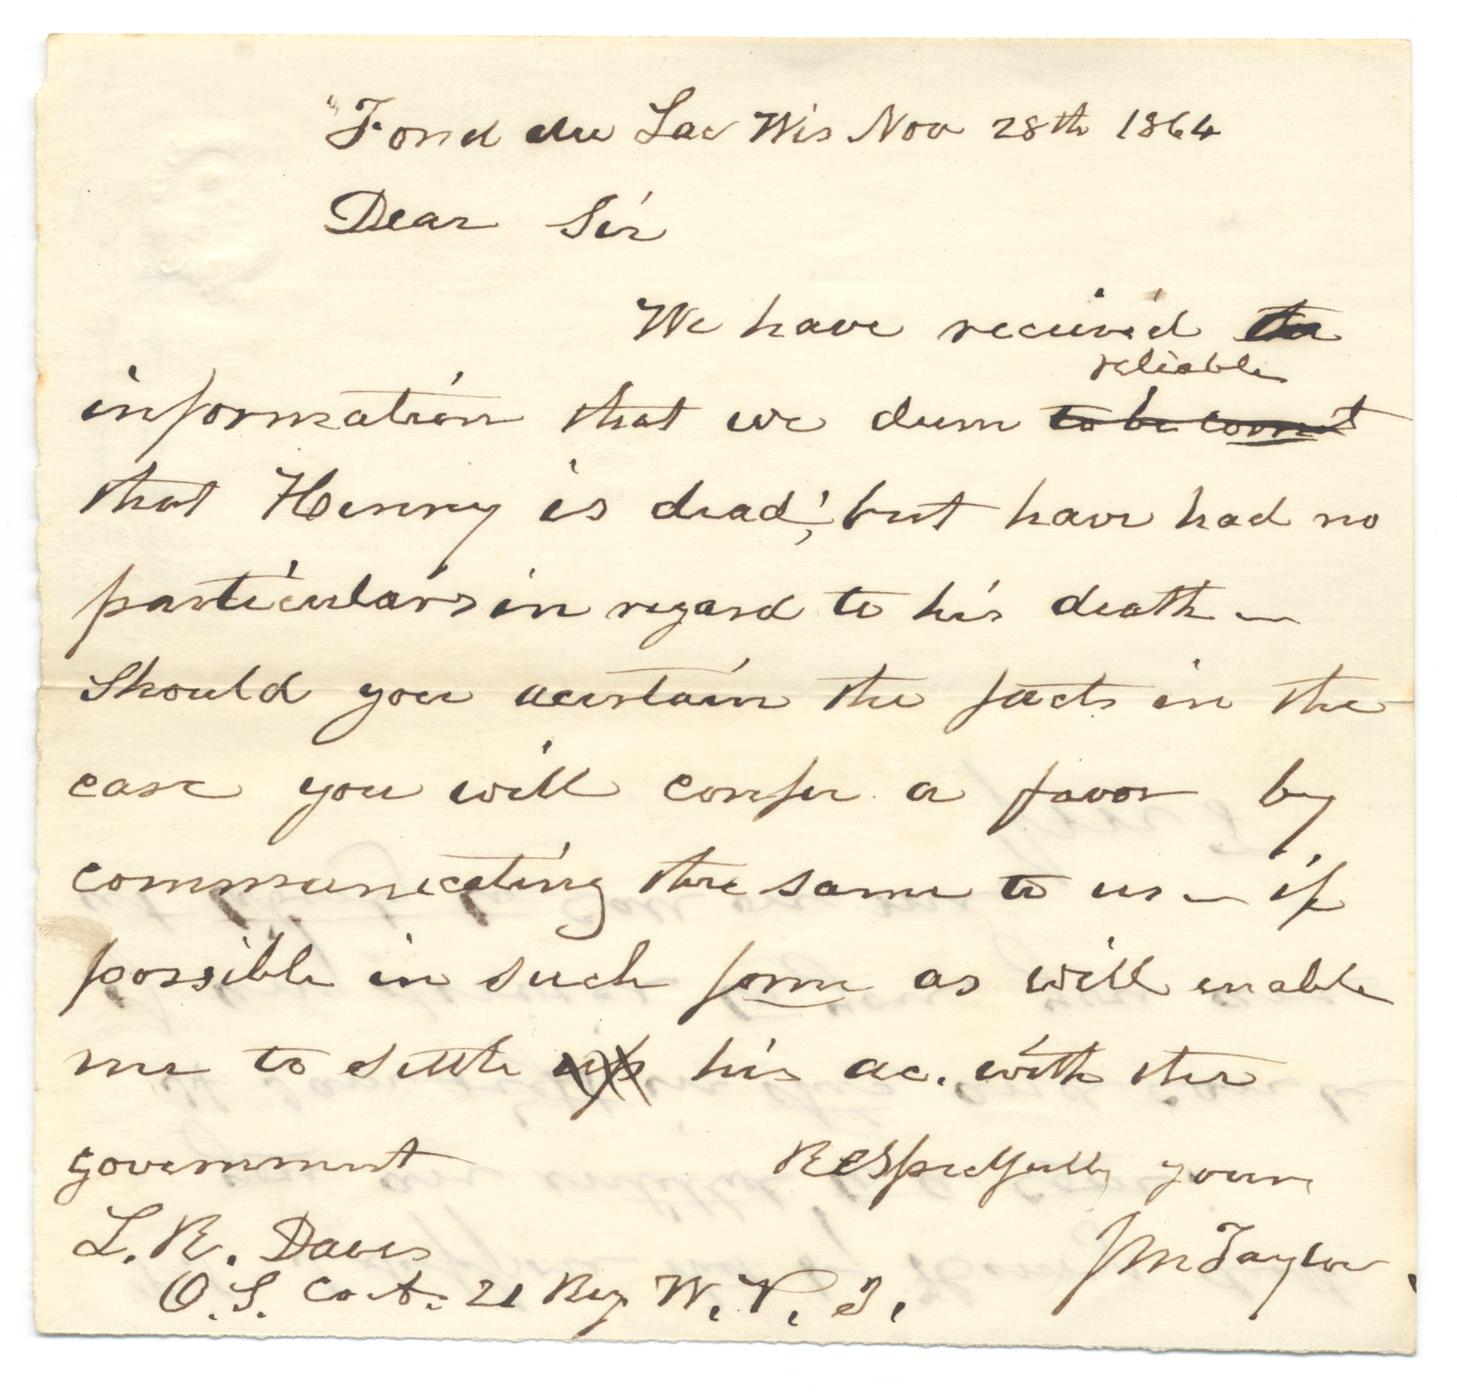 "Fond du Lac Wis Nov 28th 1864
Dear Sir
We have received the
reliable
information that we deem to be correct
that Henry is dead, but have had no
particulars in regard to his death —
Should you acertain the facts in the
case you will confer a favor by
communicating the same to us — if
possible in such form as will enable
me to settle up his ac. with the
government Respectfully yours
L. R. Daves JM Taylor
O. S. Co A. 21 Reg W. V. I.